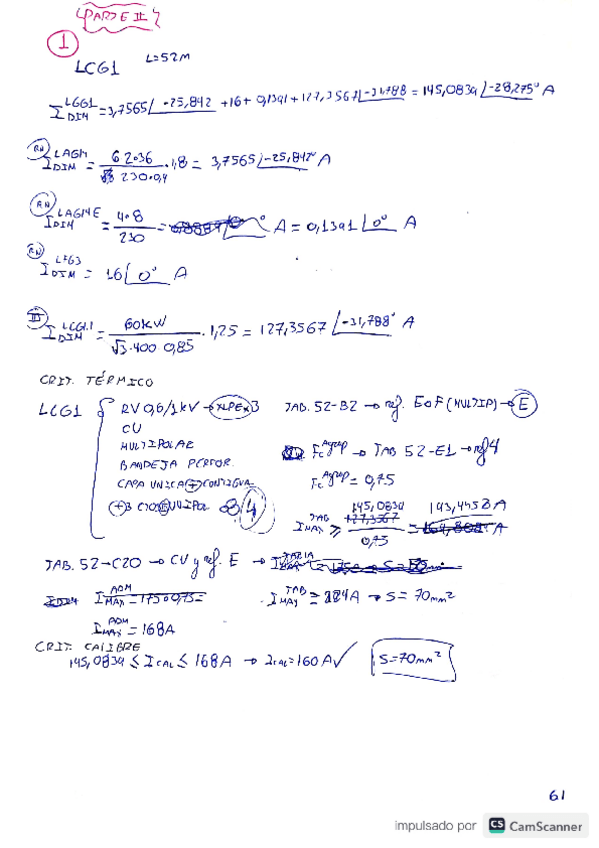 PARTE II
1
LCG1 L=52m
I_DIM^LGG1 = 3,7565∠-25,842 + 16 + 0,1391 + 127,3567∠-31,788 = 145,0839∠-28,275° A
RN I_DIM^LAGM = 62036 / √3 230·0,9 · 1,8 = 3,7565∠-25,842° A
RN I_DIM^LAGME = 4·8 / 230 = A = 0,1391∠0° A
RN I_DIM^LFG3 = 16∠0° A
III I_DIM^LCG1.1 = 60kW / √3·400 0,85 · 1,25 = 127,3567∠-31,788° A
CRIT. TÉRMICO
LCG1 { RV 0,6/1kV → XLPE 3 TAB. 52-B2 → ref. E o F (MULTIP) → E
CU
MULTIPOLAR Fc^Agrup → TAB 52-E1 → ref 4
BANDEJA PERFOR. Fc^Agrup = 0,75
CAPA UNICA (+) CONTIGUA
I_MAX^TAB ≥ 145,0839 / 0,75 = 193,4458 A
TAB. 52-C20 → CU y ref. E →
I_MAX^ADM = 175·0,75= I_MAX^TAB = 224A → S= 70mm²
I_MAX^ADM = 168A
CRIT. CALIBRE
145,0839 ≤ I CAL ≤ 168A → I CAL = 160A ✓ S=70mm²
61
impulsado por CS CamScanner